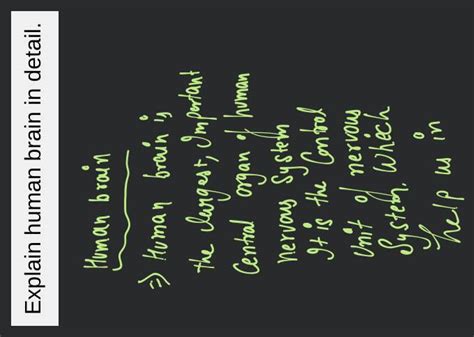 Explain human brain in detail.
Human brain
⇒ Human brain is
the largest, Important
Central organ of human
nervous System
It is the Control
Unit of nervous
System. Which
help us in